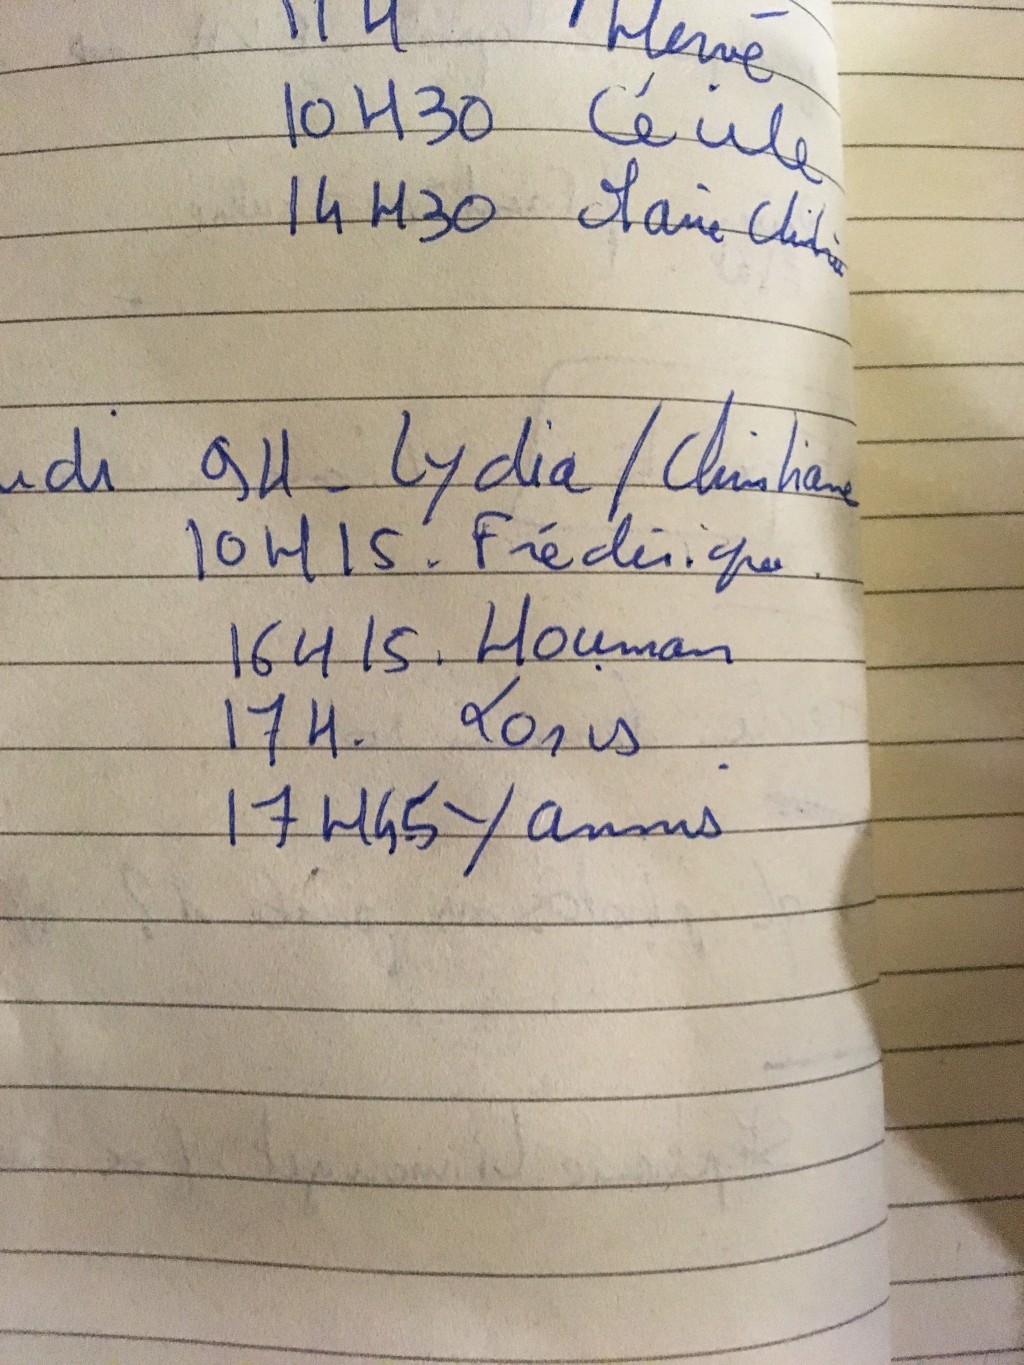 Hervé
10H30 Cécile
14H30 Marie Christine
udi 9H - Lydia / Christiane
10H15. Frédérique.
16H15. Houman
17H. Loris
17H45 Yannis